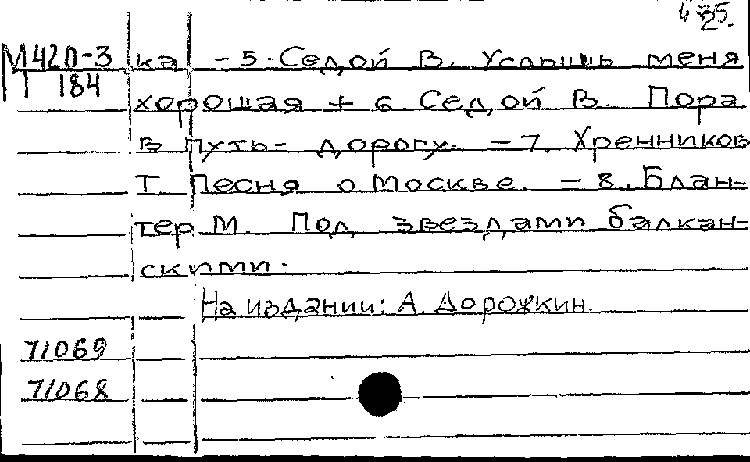 435.
2.
М420-3 ка - 5. Седой В. Услышь меня
Т 184
хорошая + 6. Седой В. Пора
в путь- дорогу. - 7. Хренников
Т. Песня о Москве. - 8. Блан-
тер М. Под звездами балкан-
скими.
На издании: А. Дорожкин.
71069
71068